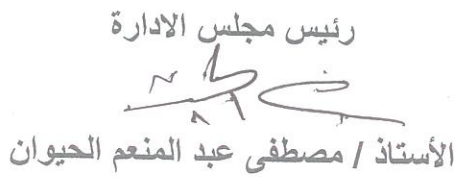 رئيس مجلس الادارة
الأستاذ / مصطفى عبد المنعم الحيوان